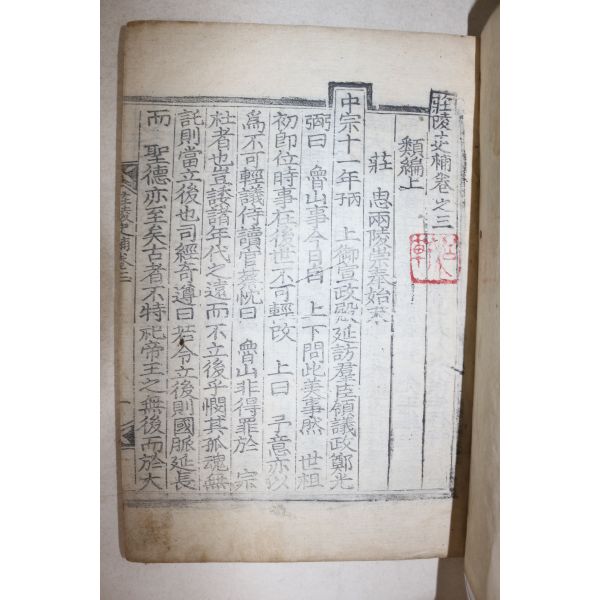 莊陵史補卷之三
類編上
莊 思兩陵崇奉始末
中宗十一年丙子 上御宣政殿延訪羣臣領議政鄭光
弼曰 魯山事今日古 上下問此美事然 世祖
初卽位時事在後世不可輕改 上曰 予意亦以
爲不可輕議侍讀官 曰 魯山非得罪於 宗
社者也豈諉諸年代之遠而不立後乎憫其孤魂無
託則當立後也司經奇遵曰若令立後則國脈延長
而 聖德亦至矣古者不特祀帝王之無後而於大
莊陵史補卷三